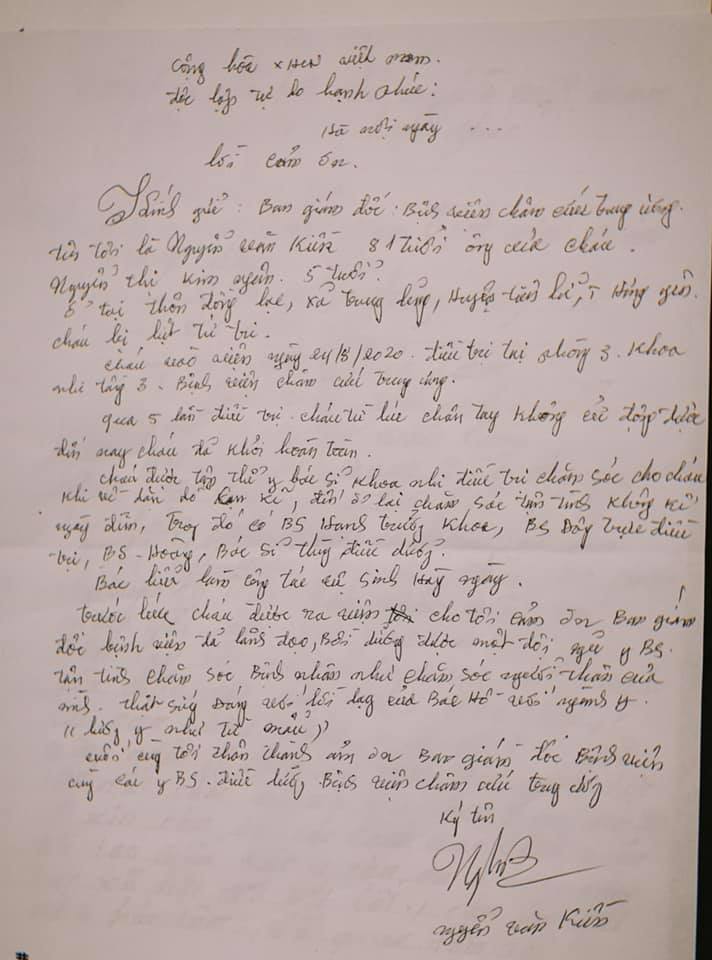 cộng hòa XHCN việt nam.
độc lập tự do hạnh phúc:
Hà nội ngày ...
lời cảm ơn.
Kính gửi: Ban giám đốc: Bệnh viện châm cứu trung ương.
tên tôi là Nguyễn văn Kiên 81 tuổi ông của cháu.
Nguyễn thi kim 5 tuổi.
ở tại thôn đông lạc, xã trung dũng, Huyện tiên lữ, T Hưng yên.
cháu bị liệt tứ tri.
cháu vào viện ngày 21/8/2020. điều trị tại phòng 3. Khoa
nhi tầng 3. Bệnh viện châm cứu trung ương.
qua 5 lần điều trị. cháu từ lúc chân tay không cử động được
đến nay cháu đã khỏi hoàn toàn.
cháu được tập thể y bác sĩ khoa nhi điều trị chăm sóc cho cháu
khi về dặn dò đến ở lại chăm sóc tận tình không kể
ngày đêm, trong đó có BS trưởng khoa, BS trực điều
trị, BS. Hoàng, Bác sĩ thùy điều dưỡng.
Bác làm công tác vệ sinh Hàng ngày.
trước lúc cháu được ra viện cho tôi cảm ơn Ban giám
đốc bệnh viện đã lãnh đạo, Bồi dưỡng được một đội ngũ y BS.
tận tình chăm sóc Bệnh nhân như chăm sóc người thân của
mình. thật sứng đáng với lời dạy của Bác Hồ với ngành y.
"lương y như từ mẫu"
cuối cùng tôi chân thành cảm ơn Ban giám đốc Bệnh viện
cùng các y BS. điều dưỡng. Bệnh viện châm cứu trung ương
Ký tên
nguyễn văn Kiên